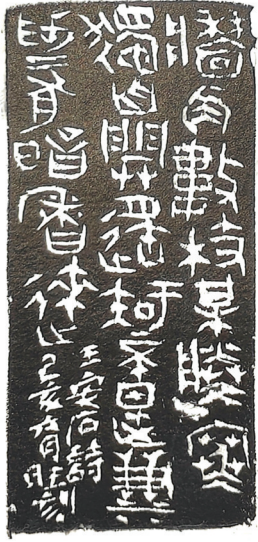 牆角數枝某凌寒
獨自開遙知不是雪
為有暗香來
王安石詩
己亥